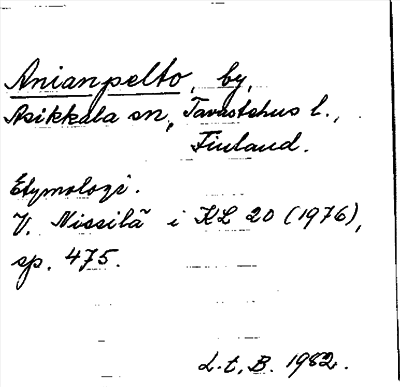 Anianpelto, by,
Asikkala sn, Tavastehus l.,
Finland.
Etymologi.
V. Nissilä i KL 20 (1976),
sp. 475.
L.t.B. 1982.